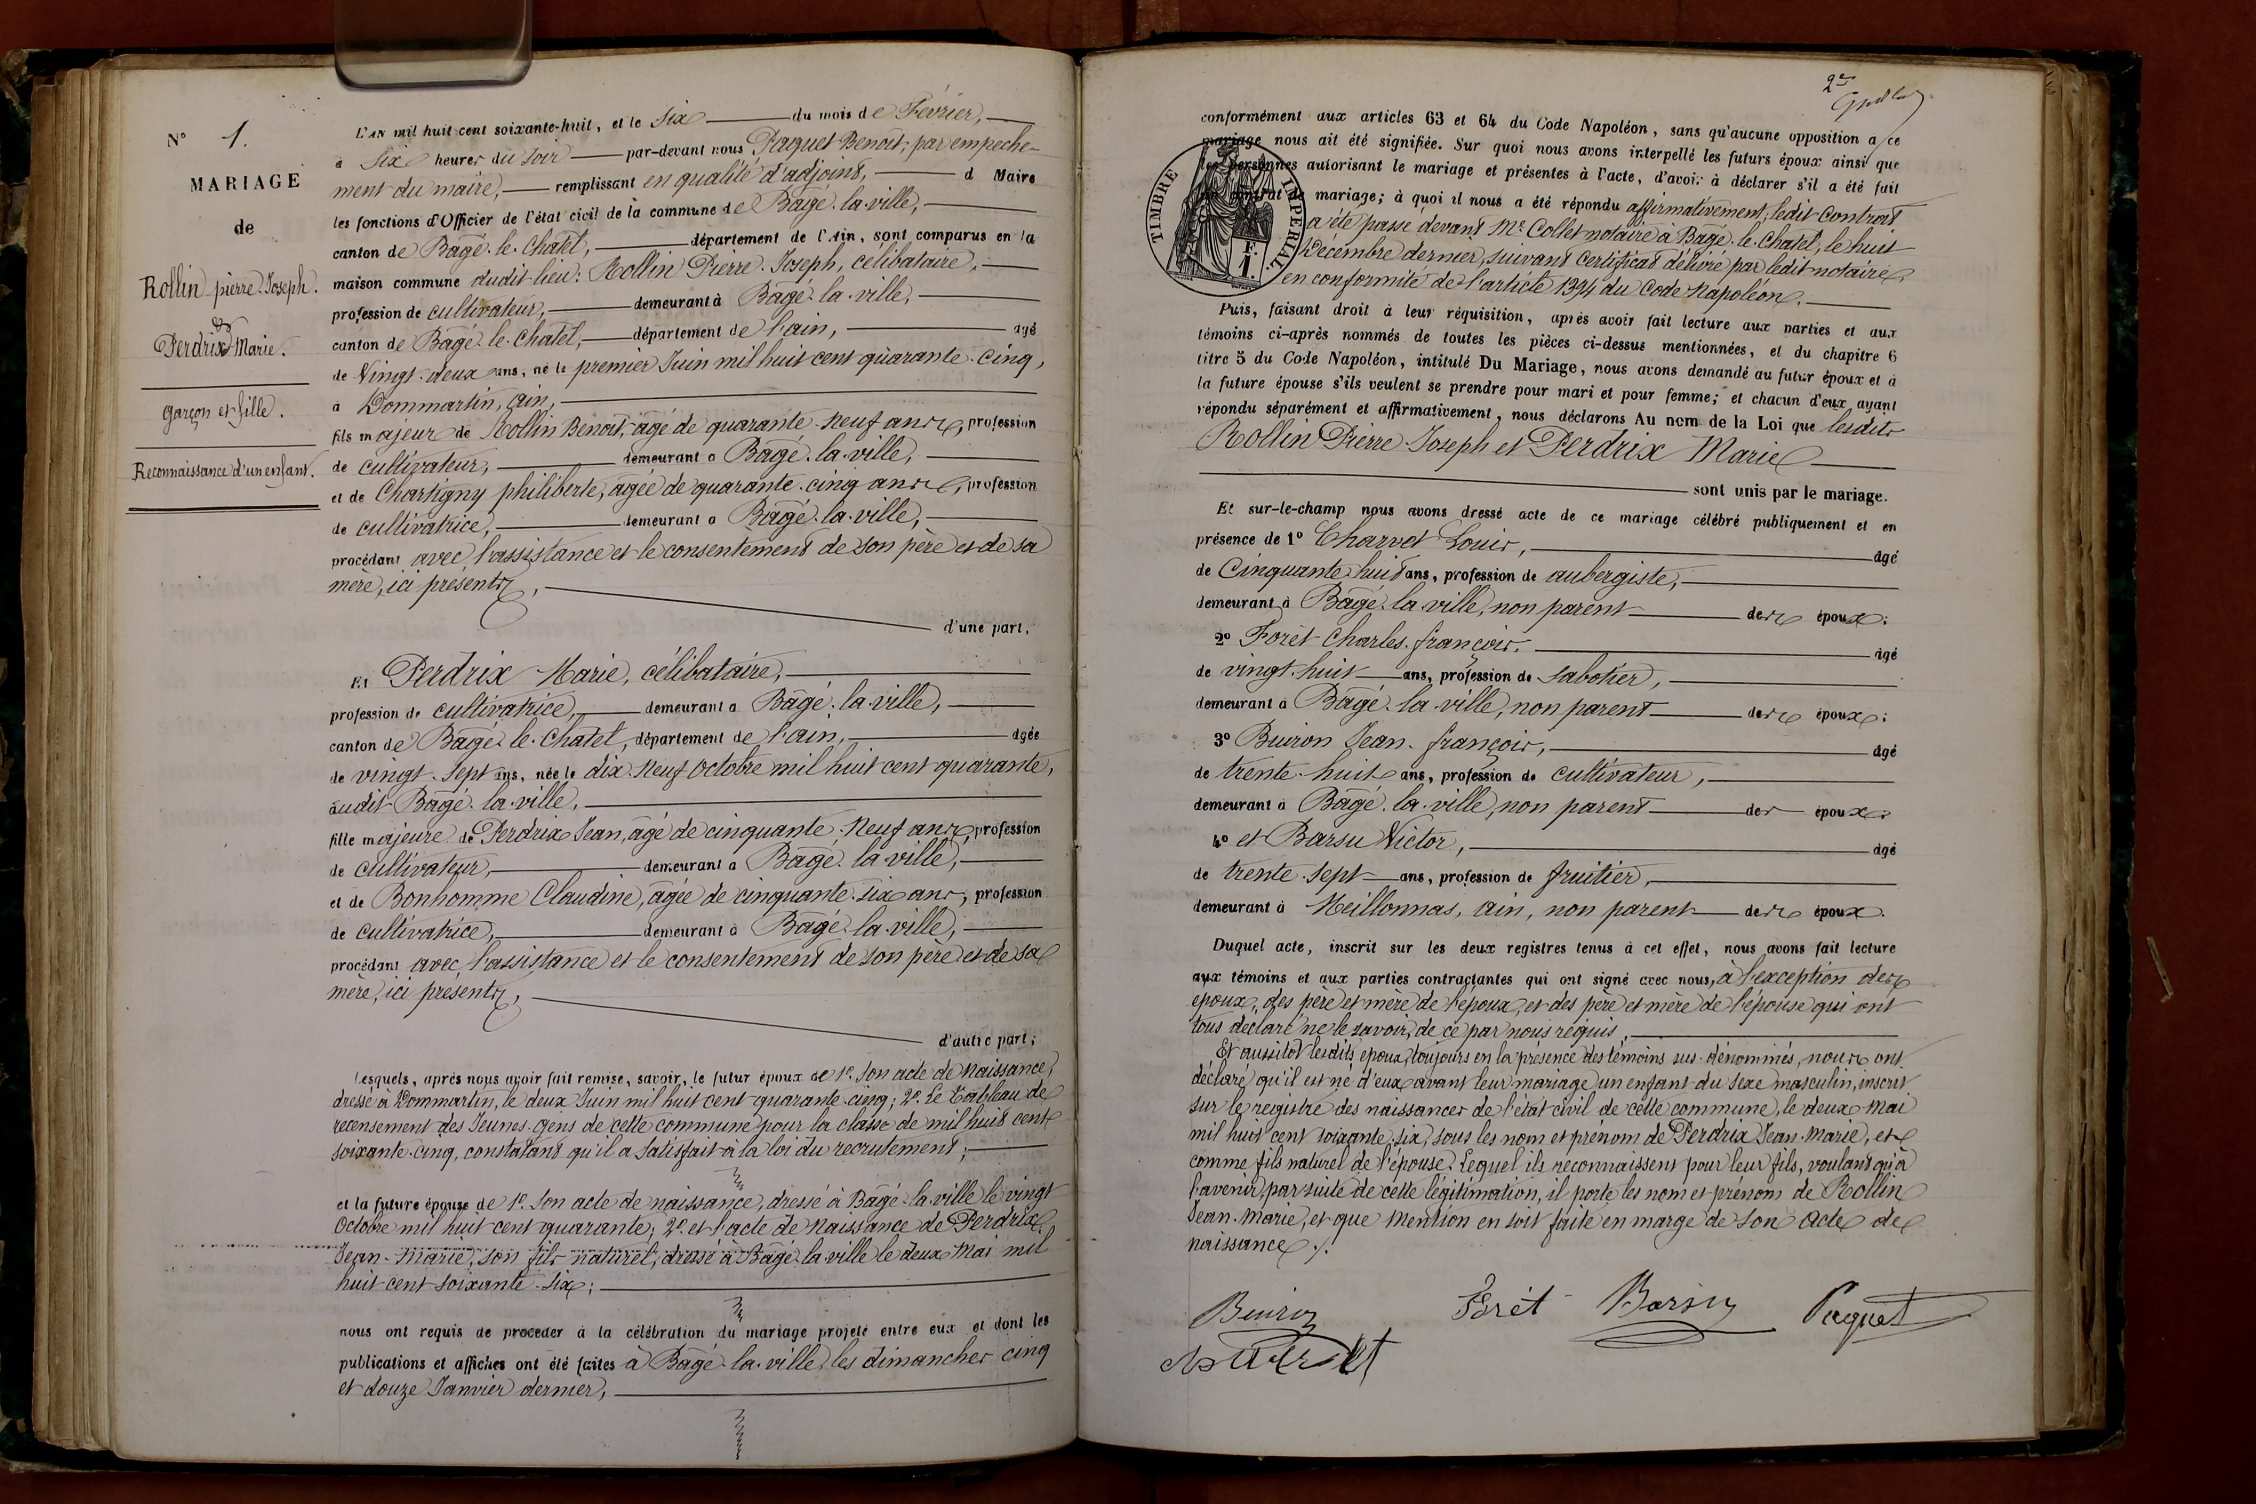 N° 1.
MARIAGE
de
Rollin pierre Joseph.
&
Perdrix Marie.
garçon et fille.
Reconnaissance d'un enfant.
L'AN mil huit cent soixante-huit, et le Six du mois de Février,
à Six heures du Soir par-devant nous Paquet Benoit, par empeche-
ment du maire, remplissant en qualité d'adjoint, d Maire
les fonctions d'Officier de l'état civil de la commune de Bâgé-la-ville,
canton de Bâgé-le-Chatel, département de l'Ain, sont comparus en la
maison commune dudit lieu: Rollin Pierre-Joseph, célibataire,
profession de cultivateur, demeurant à Bâgé-la-ville,
canton de Bâgé-le-Chatel, département de l'ain, âgé
de Vingt-deux ans, né le premier Juin mil huit cent quarante-cinq,
à Dommartin, ain,
fils majeur de Rollin Benoit, âgé de quarante-neuf ans, profession
de cultivateur, demeurant à Bâgé-la-ville,
et de Chartigny philiberte, âgée de quarante-cinq ans, profession
de cultivatrice, demeurant à Bâgé-la-ville,
procédant avec l'assistance et le consentement de son père et de sa
mère, ici présents,
d'une part,
Et Perdrix Marie, célibataire,
profession de cultivatrice, demeurant à Bâgé-la-ville,
canton de Bâgé-le-Chatel, département de l'ain, âgée
de vingt-sept ans, née le dix-neuf Octobre mil huit cent quarante,
audit Bâgé-la-ville,
fille majeure de Perdrix Jean, âgé de cinquante-neuf ans, profession
de cultivateur, demeurant à Bâgé-la-ville,
et de Bonhomme Claudine, âgée de cinquante-six ans, profession
de cultivatrice, demeurant à Bâgé-la-ville,
procédant avec l'assistance et le consentement de son père et de sa
mère, ici présents,
d'autre part;
Lesquels, après nous avoir fait remise, savoir, le futur époux de 1°. Son acte de Naissance,
dressé à Dommartin, le deux Juin mil huit cent quarante-cinq; 2°. Le Tableau de
recensement des Jeunes-gens de cette commune pour la classe de mil huit cent
soixante-cinq, constatant qu'il a satisfait à la loi du recrutement;
et la future épouse de 1°. Son acte de naissance, dressé à Bâgé-la-ville le vingt
Octobre mil huit cent quarante; 2°. et l'acte de Naissance de Perdrix
Jean-Marie, son fils naturel, dressé à Bâgé-la-ville le deux Mai mil
huit cent soixante-six;
nous ont requis de procéder à la célébration du mariage projeté entre eux et dont les
publications et affiches ont été faites à Bâgé-la-ville, les dimanches cinq
et douze Janvier dernier,
2e
conformément aux articles 63 et 64 du Code Napoléon, sans qu'aucune opposition a ce
mariage nous ait été signifiée. Sur quoi nous avons interpellé les futurs époux ainsi que
les personnes autorisant le mariage et présentes à l'acte, d'avoir à déclarer s'il a été fait
contrat de mariage; à quoi il nous a été répondu affirmativement, ledit Contrat
a été passé devant Me. Collet notaire à Bâgé-le-Chatel, le huit
Décembre dernier, suivant certificat délivré par ledit notaire,
en conformité de l'article 1394 du Code Napoléon.
TIMBRE IMPERIAL.
F.
1.
Puis, faisant droit à leur réquisition, après avoir fait lecture aux parties et aux
témoins ci-après nommés de toutes les pièces ci-dessus mentionnées, et du chapitre 6
titre 5 du Code Napoléon, intitulé Du Mariage, nous avons demandé au futur époux et à
la future épouse s'ils veulent se prendre pour mari et pour femme; et chacun d'eux ayant
répondu séparément et affirmativement, nous déclarons Au nom de la Loi que lesdits
Rollin Pierre-Joseph et Perdrix Marie
sont unis par le mariage.
Et sur-le-champ nous avons dressé acte de ce mariage célébré publiquement et en
présence de 1° Charvet Louis, âgé
de Cinquante-huit ans, profession de aubergiste,
demeurant à Bâgé-la-ville, non parent des époux;
2° Forêt Charles-françois, âgé
de vingt-huit ans, profession de Sabotier,
demeurant à Bâgé-la-ville, non parent des époux;
3° Buiron Jean-françois, âgé
de trente-huit ans, profession de cultivateur,
demeurant à Bâgé-la-ville, non parent des époux;
4° et Barsu Victor, âgé
de trente-sept ans, profession de fruitier,
demeurant à Meillonnas, ain, non parent des époux.
Duquel acte, inscrit sur les deux registres tenus à cet effet, nous avons fait lecture
aux témoins et aux parties contractantes qui ont signé avec nous, à l'exception des
époux, des père et mère de l'époux, et des père et mère de l'épouse qui ont
tous déclaré ne le savoir, de ce par nous requis,
Et aussitôt lesdits époux, toujours en la présence des témoins sus-dénommés, nous ont
déclaré qu'il est né d'eux avant leur mariage un enfant du sexe masculin, inscrit
sur le registre des naissances de l'état civil de cette commune, le deux Mai
mil huit cent soixante-six, sous les nom et prénom de Perdrix Jean-Marie, et
comme fils naturel de l'épouse. Lequel ils reconnaissent pour leur fils, voulant qu'à
l'avenir, par suite de cette légitimation, il porte les nom et prénom de Rollin
Jean-Marie, et que Mention en soit faite en marge de son acte de
naissance ./.
Buiron Forêt Barsu Paquet